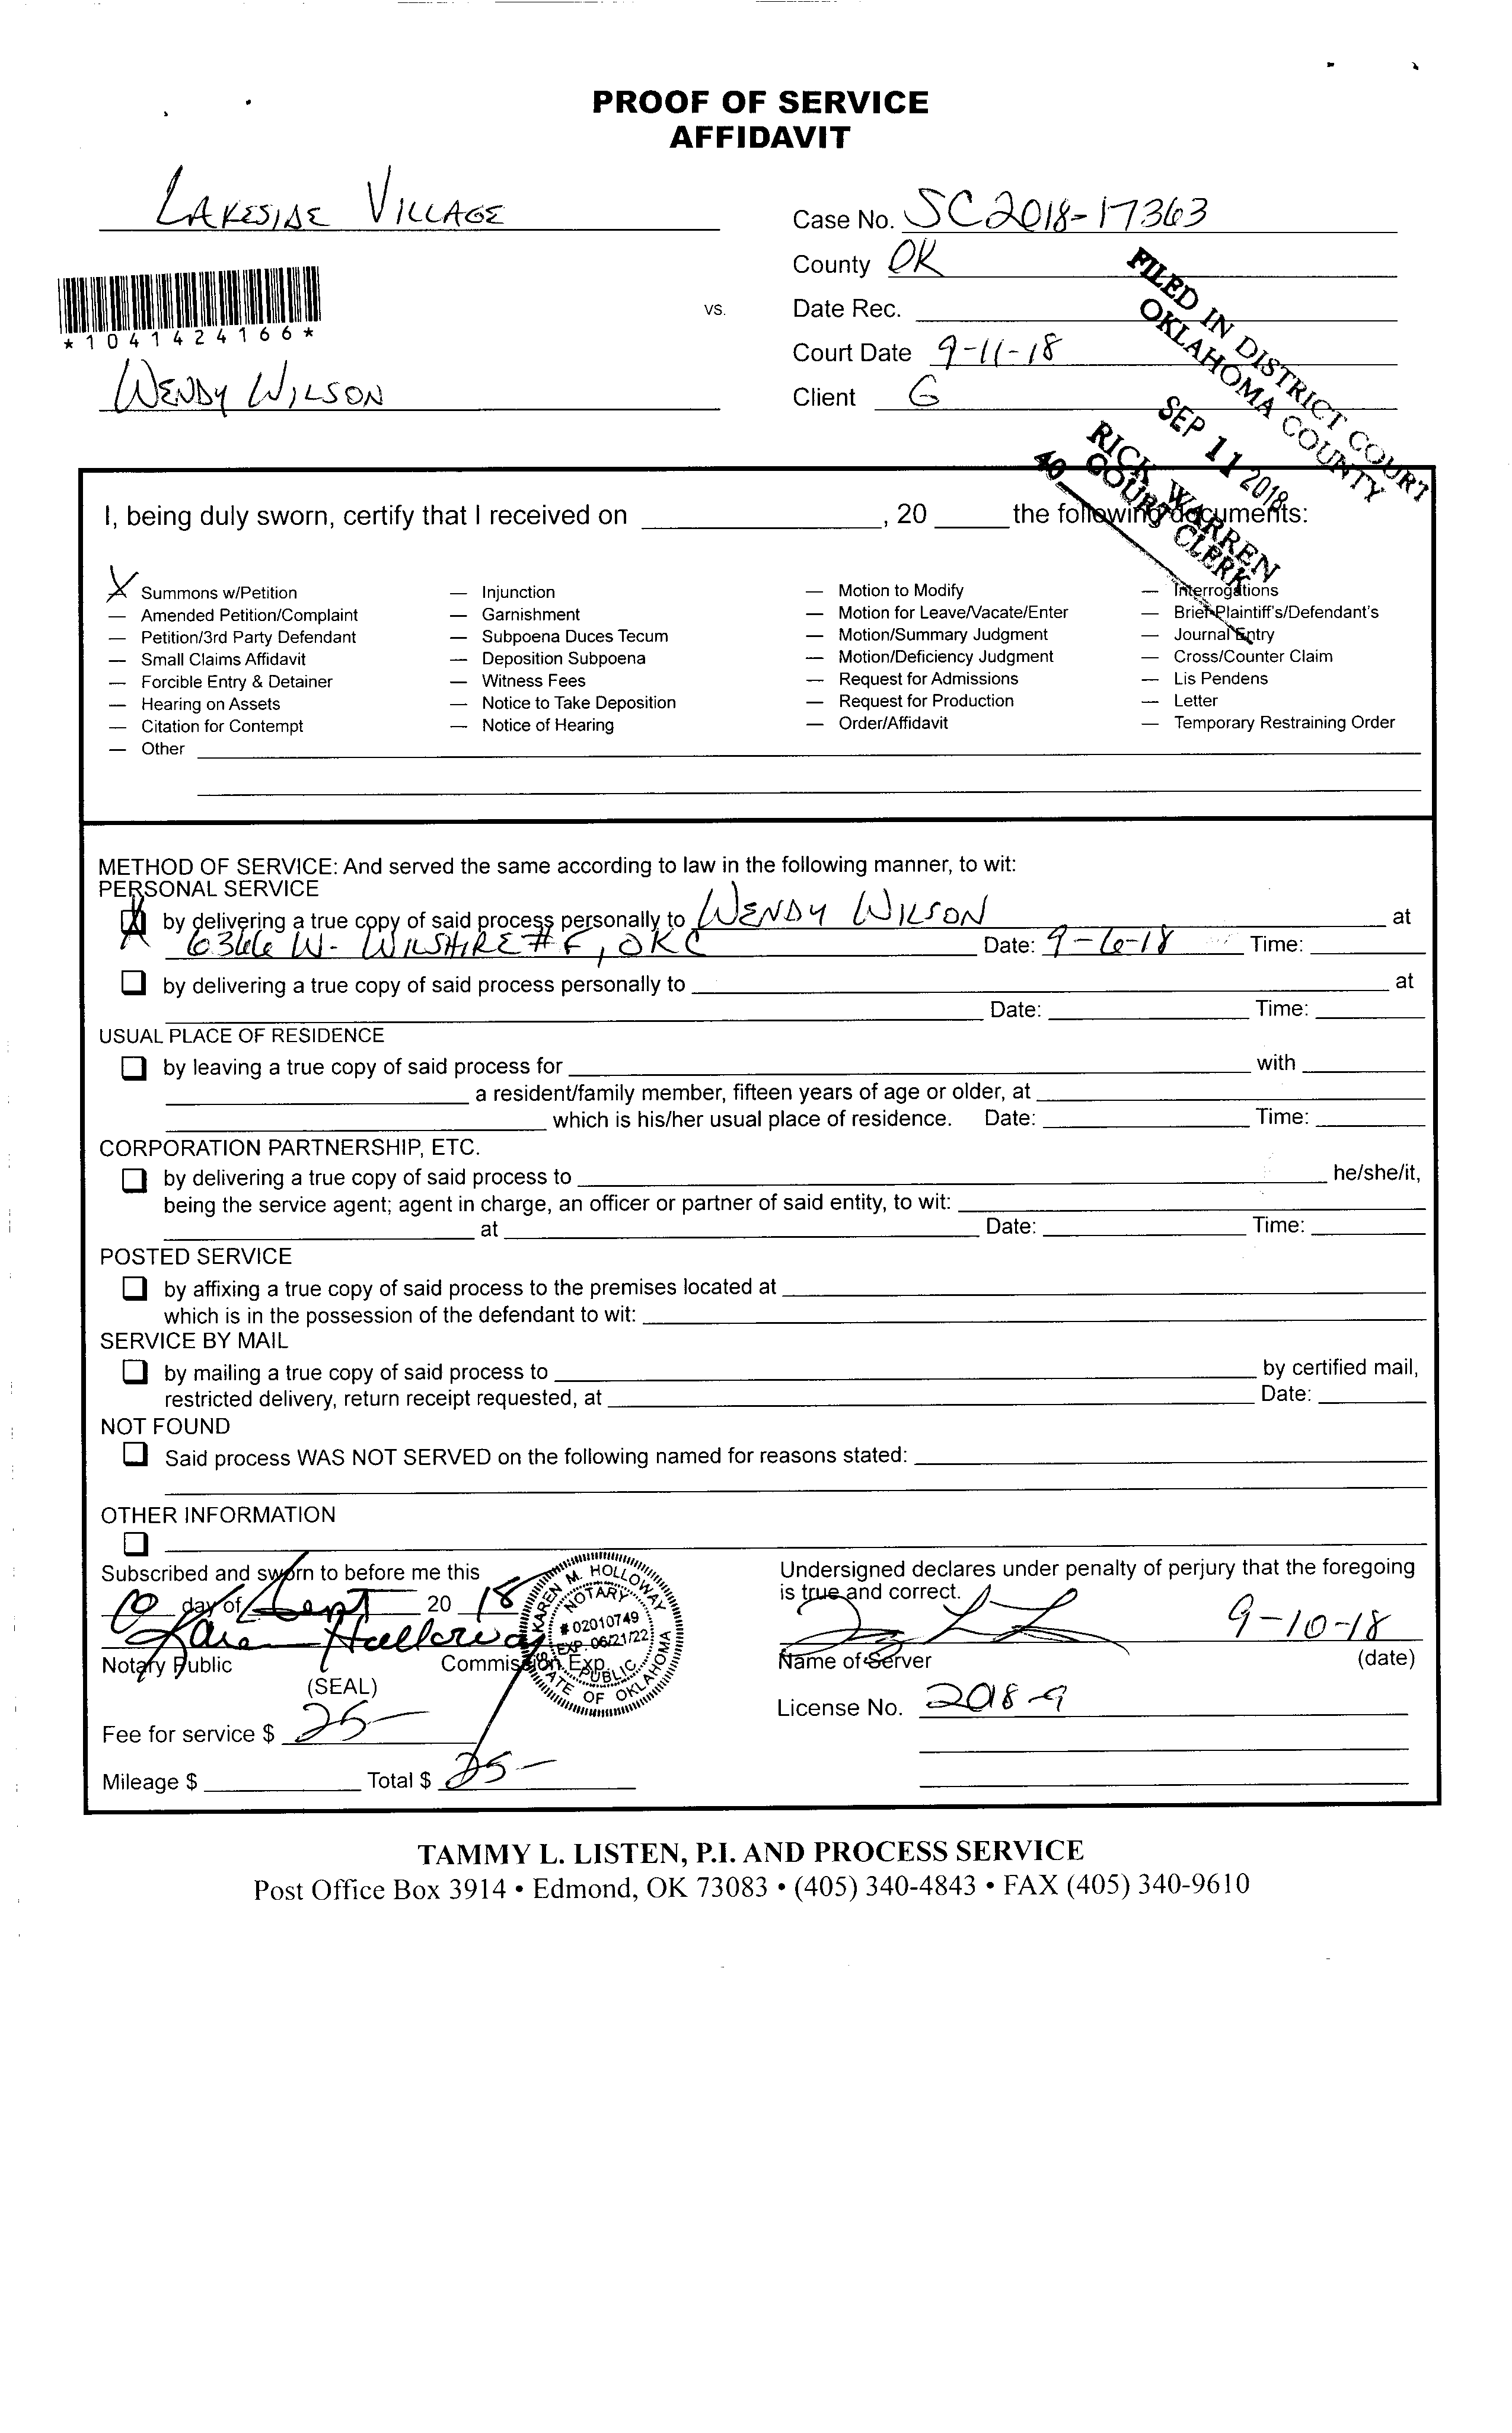 PROOF OF SERVICE
AFFIDAVIT
LAKESIDE VILLAGE
Case No. SC2018-17363
County OK
*1041424166*
vs.
Date Rec.
Court Date 9-11-18
WENDY WILSON
Client G
FILED IN DISTRICT COURT
OKLAHOMA COUNTY
SEP 11 2018
RICK WARREN
COURT CLERK
40
I, being duly sworn, certify that I received on , 20 the following documents:
X Summons w/Petition
— Amended Petition/Complaint
— Petition/3rd Party Defendant
— Small Claims Affidavit
— Forcible Entry & Detainer
— Hearing on Assets
— Citation for Contempt
— Other
— Injunction
— Garnishment
— Subpoena Duces Tecum
— Deposition Subpoena
— Witness Fees
— Notice to Take Deposition
— Notice of Hearing
— Motion to Modify
— Motion for Leave/Vacate/Enter
— Motion/Summary Judgment
— Motion/Deficiency Judgment
— Request for Admissions
— Request for Production
— Order/Affidavit
— Interrogations
— Brief-Plaintiff's/Defendant's
— Journal Entry
— Cross/Counter Claim
— Lis Pendens
— Letter
— Temporary Restraining Order
METHOD OF SERVICE: And served the same according to law in the following manner, to wit:
PERSONAL SERVICE
by delivering a true copy of said process personally to WENDY WILSON at
6366 W. WILSHIRE #F, OKC Date: 9-6-18 Time:
by delivering a true copy of said process personally to at
Date: Time:
USUAL PLACE OF RESIDENCE
by leaving a true copy of said process for with
a resident/family member, fifteen years of age or older, at
which is his/her usual place of residence. Date: Time:
CORPORATION PARTNERSHIP, ETC.
by delivering a true copy of said process to he/she/it,
being the service agent; agent in charge, an officer or partner of said entity, to wit:
at Date: Time:
POSTED SERVICE
by affixing a true copy of said process to the premises located at
which is in the possession of the defendant to wit:
SERVICE BY MAIL
by mailing a true copy of said process to by certified mail,
restricted delivery, return receipt requested, at Date:
NOT FOUND
Said process WAS NOT SERVED on the following named for reasons stated:
OTHER INFORMATION
Subscribed and sworn to before me this
10 day of Sept 20 18
Karen Holloway
Notary Public Commission Exp.
(SEAL)
KAREN M. HOLLOWAY
NOTARY
# 02010749
EXP. 06/21/22
PUBLIC
STATE OF OKLAHOMA
Fee for service $ 25-
Mileage $ Total $ 25-
Undersigned declares under penalty of perjury that the foregoing
is true and correct.
9-10-18
Name of Server (date)
License No. 2018-9
TAMMY L. LISTEN, P.I. AND PROCESS SERVICE
Post Office Box 3914 • Edmond, OK 73083 • (405) 340-4843 • FAX (405) 340-9610